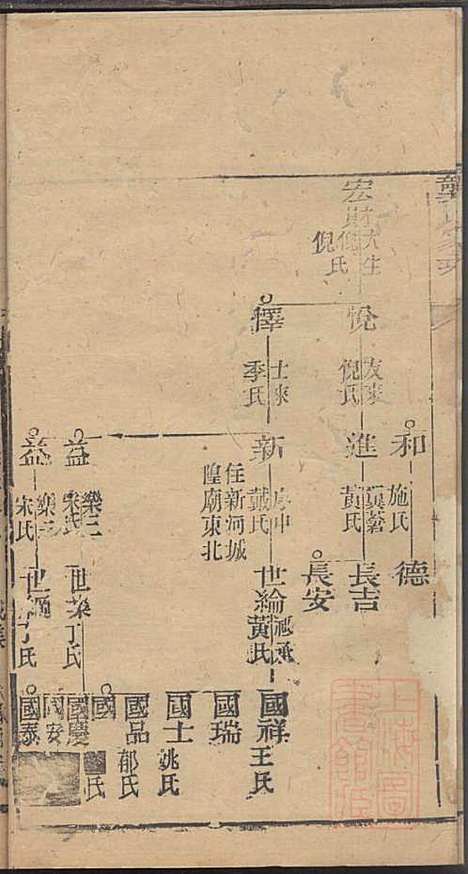 宏財 大生 倪氏 倪氏
悅 友來 倪氏
擇 士來 季氏
和 施氏
進 黃氏
新 戴氏
住新河城
隍廟東北
益 樂二 宋氏
益 樂三 宋氏
德
長吉
長安
世綸 黃氏
世榮 丁氏
世 丁氏
國祥 王氏
國瑞
國士 姚氏
國品 郁氏
國 氏
國慶
國安
國泰
上海圖書館藏